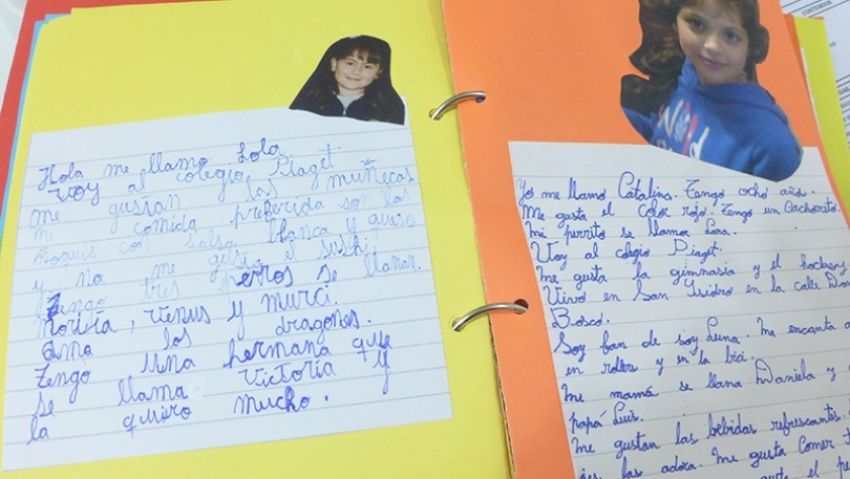 Hola me llamo Lola
Voy al colegio Piaget
me gustan las muñecas
mi comida preferida son los
ñoquis con salsa blanca y queso
y no me gusta el sushi.
Tengo tres perros se llaman.
Moritia, Venus y Murci.
Amo los dragones.
Tengo una hermana que
se llama Victoria y
la quiero mucho.
Yo me llamo Catalina. Tengo ocho años.
Me gusta el color rojo. Tengo un Cachorrito.
mi perrito se llamor Lora.
Voy al colegio Piaget.
Me gusta la gimnasia y el hockey
Vivo en San Isidro en la calle Don
Bosco.
Soy fan de soy Luna. Me encanta a
en rollers y en la bici.
Me mamá se llama Daniela y
papá Luis.
Me gustan las bebidas refrescantes.
las adora. Me gusta Comer